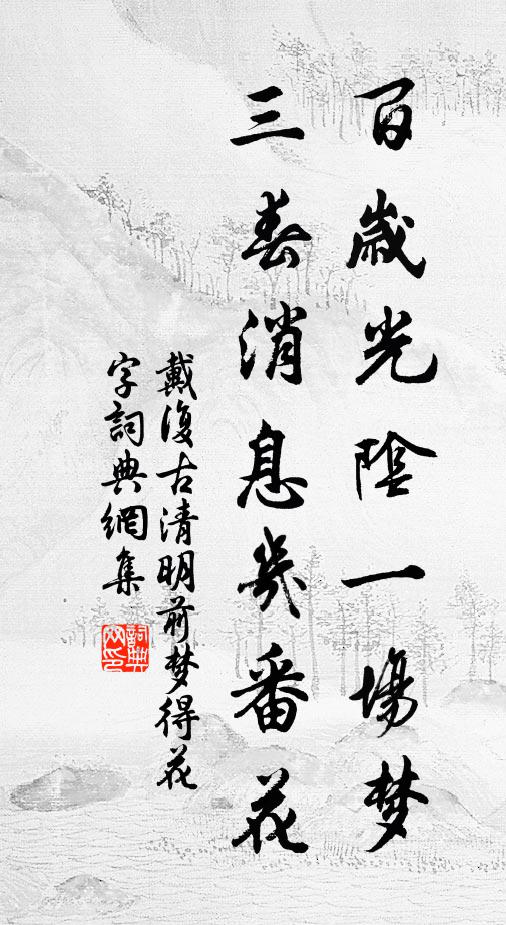 百歲光陰一場梦
三春消息幾番花
戴復古清明前梦得花
字詞典網集
詞典
网印